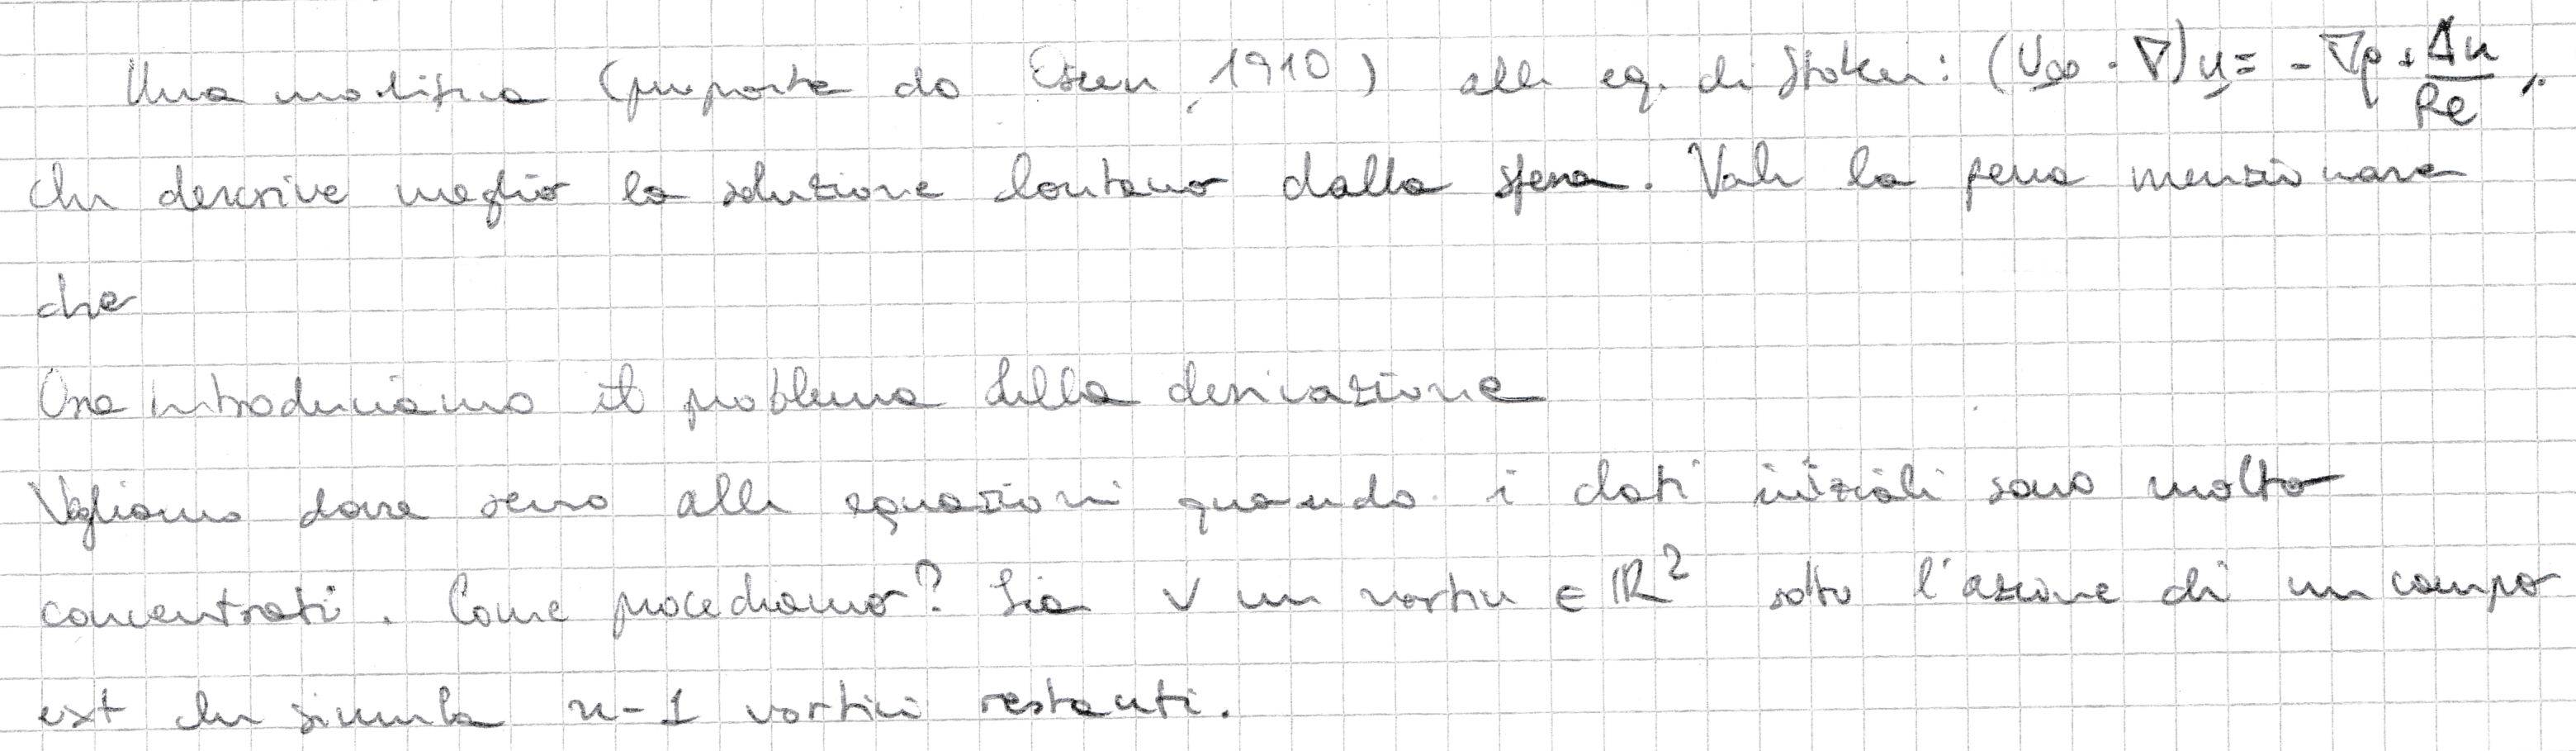 Una modifica (proposta da Oseen, 1910) alle eq. di Stokes: (U∞ · ∇)u = - ∇p + Δu/Re,
che descrive meglio la soluzione lontano dalla sfera. Vale la pena menzionare
che
Ora introduciamo il problema della derivazione
Vogliamo dare senso alle equazioni quando i dati iniziali sono molto
concentrati. Come procediamo? Sia V un vortice ∈ ℝ² sotto l'azione di un campo
ext che simula n-1 vortici restanti.